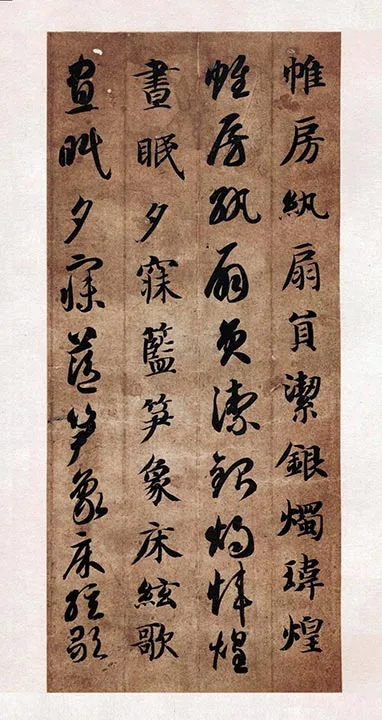 帷房紈扇員潔銀燭瑋煌
帷房紈扇員潔銀燭煒煌
晝眠夕寐籃笋象床絃歌
晝眠夕寐藍笋象床絃歌